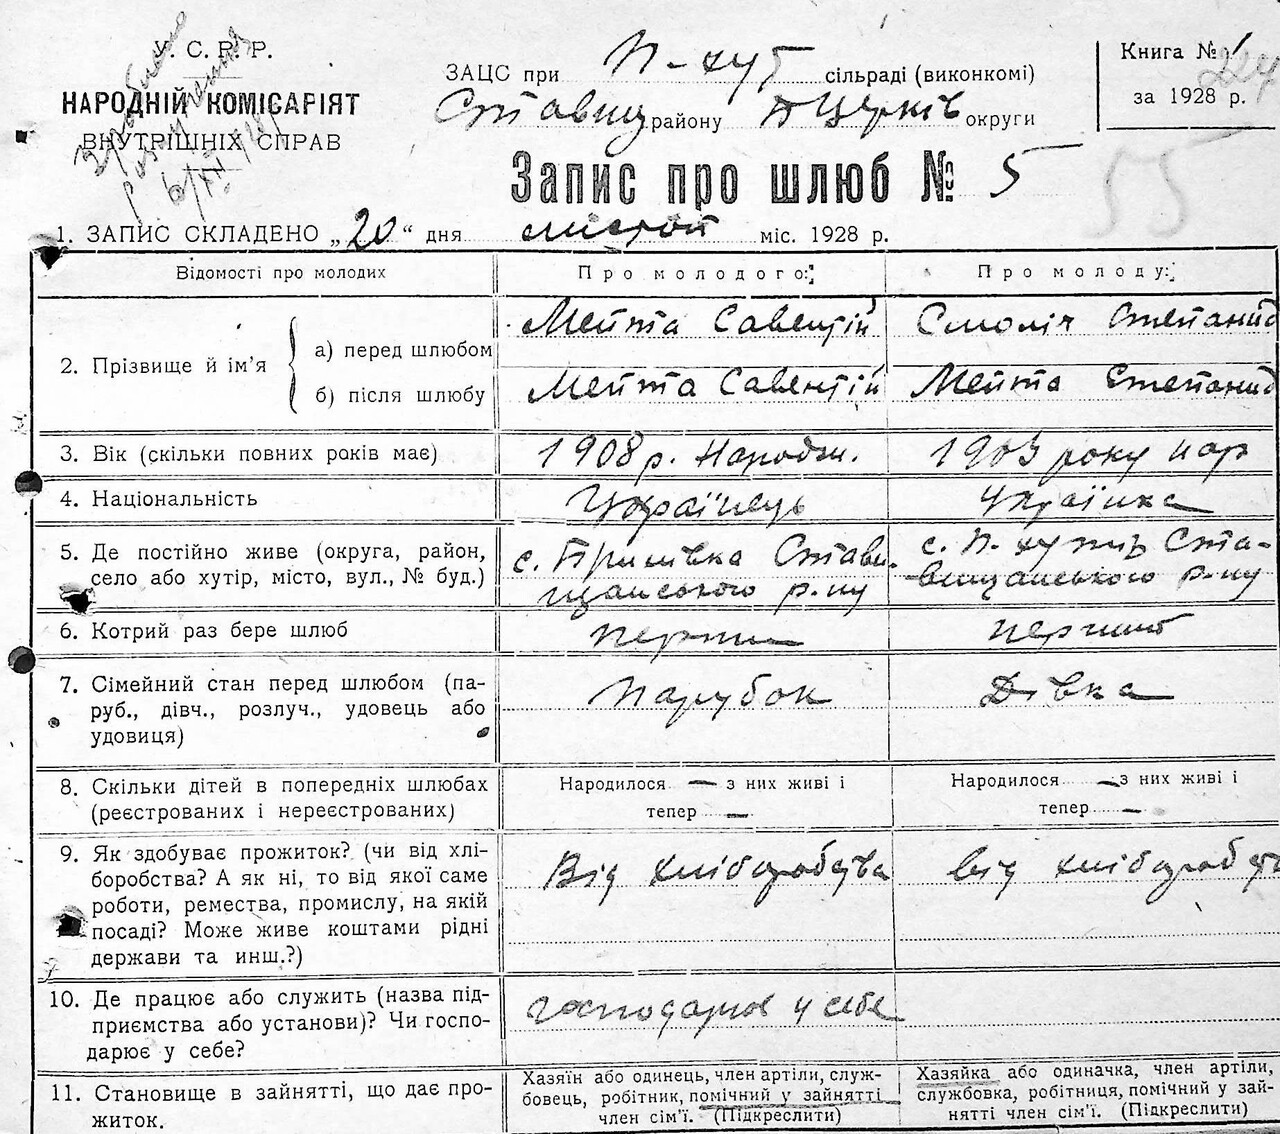 У. С. Р. Р.
НАРОДНІЙ КОМІСАРІЯТ
ВНУТРІШНІХ СПРАВ
ЗАЦС при П-хут сільраді (виконкомі)
Ставищ району Б Церків округи
Книга №
за 1928 р.
55
Запис про шлюб № 5
1. ЗАПИС СКЛАДЕНО „20“ дня листоп міс. 1928 р.
Відомості про молодих
Про молодого:
Про молоду:
2. Прізвище й ім’я
а) перед шлюбом
Мейта Савентій
Смоліч Степанид
б) після шлюбу
Мейта Савентій
Мейта Степанид
3. Вік (скільки повних років має)
1908 р. Народж.
1903 року нар
4. Національність
Українець
Українка
5. Де постійно живе (округа, район,
село або хутір, місто, вул., № буд.)
с. Стави-
щанського р-ну
с. П-хутір Ста-
вищанського р-ну
6. Котрий раз бере шлюб
перший
перший
7. Сімейний стан перед шлюбом (па-
руб., дівч., розлуч., удовець або
удовиця)
Парубок
Дівка
8. Скільки дітей в попередніх шлюбах
(реєстрованих і нереєстрованих)
Народилося — з них живі і
тепер —
Народилося — з них живі і
тепер —
9. Як здобуває прожиток? (чи від хлі-
боробства? А як ні, то від якої саме
роботи, ремества, промислу, на якій
посаді? Може живе коштами рідні
держави та инш.?)
Від хліборобства
від хліборобст
10. Де працює або служить (назва під-
приємства або установи)? Чи госпо-
дарює у себе?
господарює у себе
11. Становище в зайнятті, що дає про-
житок.
Хазяїн або одинець, член артіли, служ-
бовець, робітник, помічний у зайнятті
член сім’ї. (Підкреслити)
Хазяйка або одиначка, член артілі,
службовка, робітниця, помічний у зай-
нятті член сім’ї. (Підкреслити)